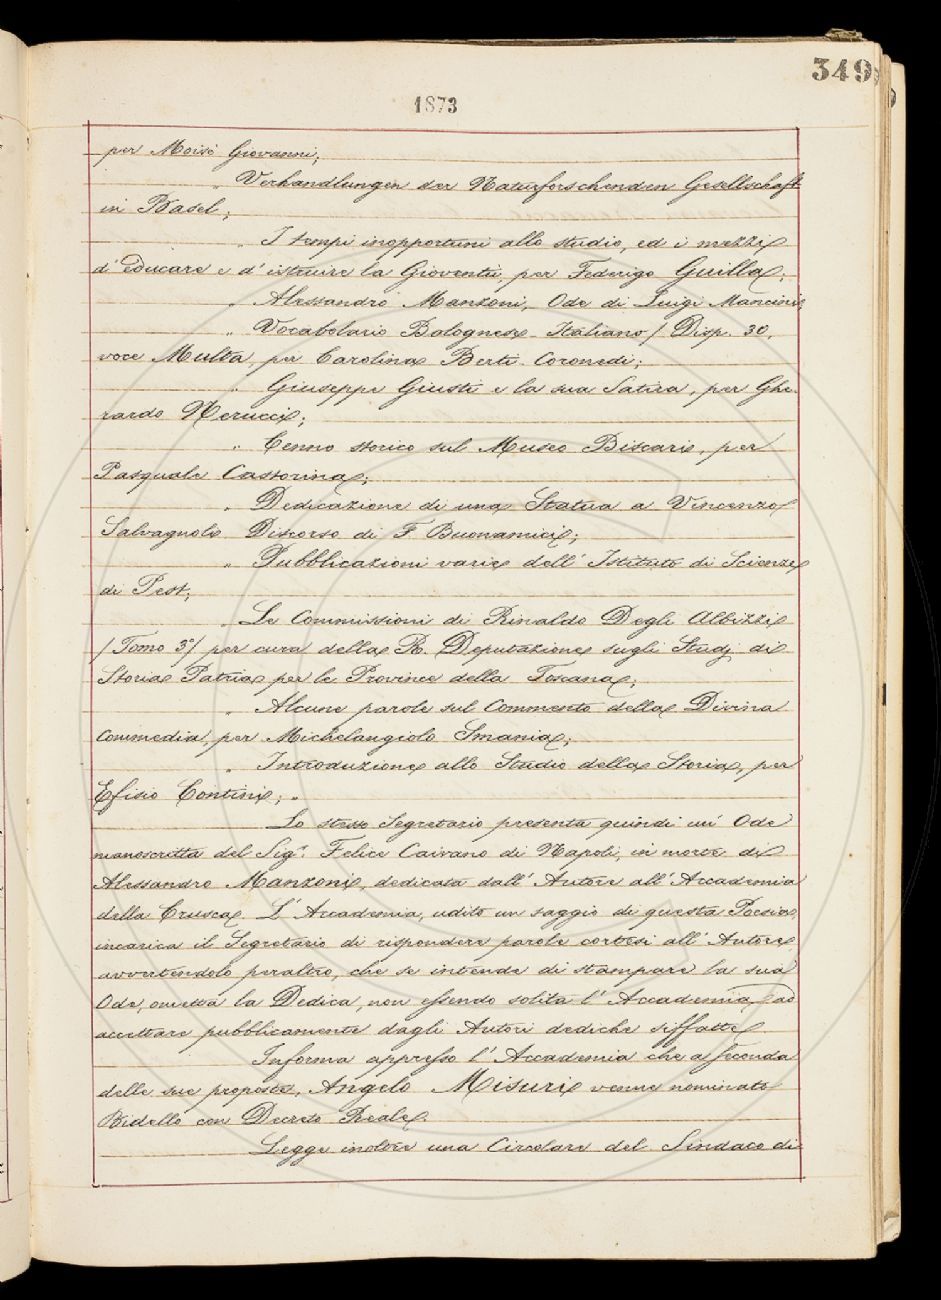 349
1873
per Moisè Giovanni;
„ Verhandlungen der Naturforschenden Gesellschaft
in Basel;
„ I tempi inopportuni allo studio, ed i mezzi
d'educare e d'istruire la Gioventù, per Federigo Guilla;
„ Alessandro Manzoni, Ode di Luigi Mancini;
„ Vocabolario Bolognese-Italiano / Disp. 30,
voce Multa, per Carolina Berti-Coronedi;
„ Giuseppe Giusti e la sua Satira, per Ghe-
rardo Nerucci;
„ Cenno storico sul Museo Biscari, per
Pasquale Castorina;
„ Dedicazione di una Statua a Vincenzo
Salvagnoli. Discorso di F. Buonamici;
„ Pubblicazioni varie dell'Istituto di Scienze
di Pest;
„ Le Commissioni di Rinaldo Degli Albizzi
/Tomo 3°/ per cura della R. Deputazione sugli Studj di
Storia Patria per le Province della Toscana;
„ Alcune parole sul Commento della Divina
Commedia, per Michelangiolo Smania;
„ Introduzione allo Studio della Storia, per
Efisio Contini; „
Lo stesso Segretario presenta quindi un' Ode
manoscritta del Sigr. Felice Caivano di Napoli, in morte di
Alessandro Manzoni, dedicata dall'Autore all'Accademia
della Crusca. L'Accademia, udito un saggio di questa Poesia,
incarica il Segretario di rispondere parole cortesi all'Autore,
avvertendolo peraltro, che se intende di stampare la sua
Ode, ometta la Dedica, non essendo solita l'Accademia, ad
accettare pubblicamente dagli Autori dediche siffatte.
Informa appresso l'Accademia che a seconda
delle sue proposte, Angelo Misuri venne nominato
Bidello con Decreto Reale.
Legge inoltre una Circolare del Sindaco di